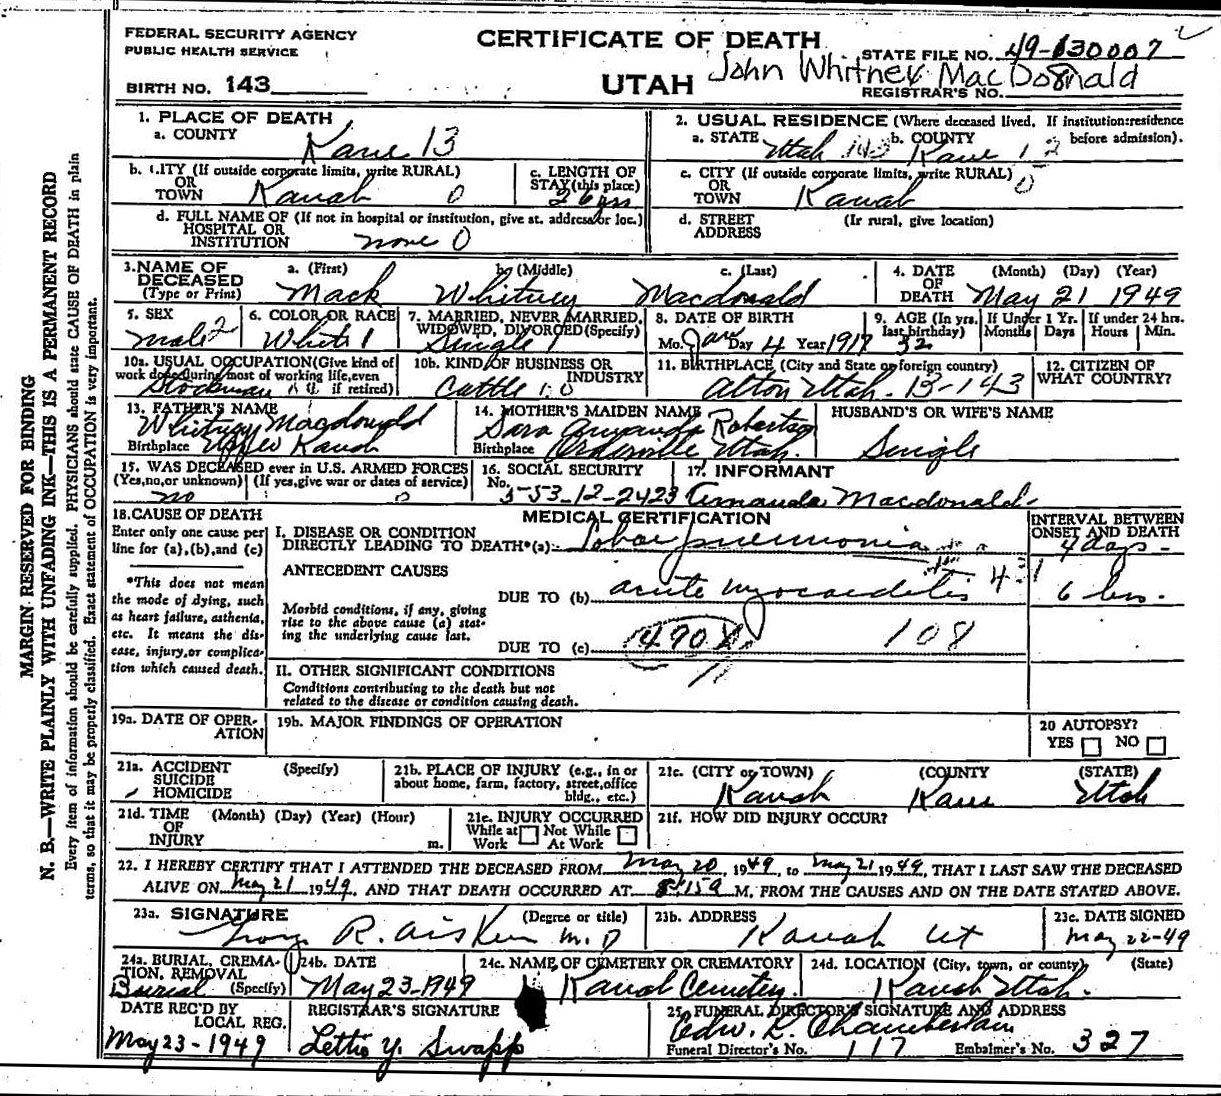 FEDERAL SECURITY AGENCY
PUBLIC HEALTH SERVICE
CERTIFICATE OF DEATH
STATE FILE NO. 49-130007
John Whitney MacDonald
BIRTH NO. 143
UTAH
REGISTRAR'S NO.
1. PLACE OF DEATH
a. COUNTY
Kane 13
2. USUAL RESIDENCE (Where deceased lived. If institution:residence before admission).
a. STATE Utah 143 b. COUNTY Kane 1
b. CITY (If outside corporate limits, write RURAL)
OR
TOWN Kanab 0
c. LENGTH OF
STAY (this place)
c. CITY (If outside corporate limits, write RURAL) 0
OR
TOWN Kanab
d. FULL NAME OF (If not in hospital or institution, give st. address or loc.)
HOSPITAL OR
INSTITUTION none 0
d. STREET (If rural, give location)
ADDRESS
3. NAME OF DECEASED (Type or Print)
a. (First) b. (Middle) c. (Last)
Mack Whitney Macdonald
4. DATE OF DEATH (Month) (Day) (Year)
May 21 1949
5. SEX
male 2
6. COLOR OR RACE
White 1
7. MARRIED, NEVER MARRIED, WIDOWED, DIVORCED (Specify)
Single 1
8. DATE OF BIRTH
Mo. Jan Day 4 Year 1917
9. AGE (In yrs. last birthday)
32
If Under 1 Yr. Months Days
If under 24 hrs. Hours Min.
10a. USUAL OCCUPATION (Give kind of work done during most of working life, even if retired)
Stockman
10b. KIND OF BUSINESS OR INDUSTRY
Cattle
11. BIRTHPLACE (City and State or foreign country)
Alton Utah. 13-143
12. CITIZEN OF WHAT COUNTRY?
13. FATHER'S NAME
Whitney Macdonald
Birthplace Upper Kanab
14. MOTHER'S MAIDEN NAME
Sara Amanda Robertson
Birthplace Orderville Utah.
HUSBAND'S OR WIFE'S NAME
Single
15. WAS DECEASED ever in U.S. ARMED FORCES
(Yes,no,or unknown) (If yes,give war or dates of service)
no 0
16. SOCIAL SECURITY
No. 553-12-2423
17. INFORMANT
Amanda Macdonald
18. CAUSE OF DEATH
Enter only one cause per line for (a),(b),and (c)
*This does not mean the mode of dying, such as heart failure, asthenia, etc. It means the disease, injury, or complication which caused death.
MEDICAL CERTIFICATION
INTERVAL BETWEEN ONSET AND DEATH
I. DISEASE OR CONDITION
DIRECTLY LEADING TO DEATH*(a) Lobar pneumonia 4 days
ANTECEDENT CAUSES
DUE TO (b) acute myocarditis 6 hrs.
Morbid conditions, if any, giving rise to the above cause (a) stating the underlying cause last.
DUE TO (c) 490X 108
II. OTHER SIGNIFICANT CONDITIONS
Conditions contributing to the death but not related to the disease or condition causing death.
19a. DATE OF OPERATION
19b. MAJOR FINDINGS OF OPERATION
20 AUTOPSY?
YES NO
21a. ACCIDENT (Specify)
SUICIDE
HOMICIDE
21b. PLACE OF INJURY (e.g., in or about home, farm, factory, street,office bldg., etc.)
21c. (CITY or TOWN) (COUNTY) (STATE)
Kanab Kane Utah
21d. TIME (Month) (Day) (Year) (Hour)
OF
INJURY m.
21e. INJURY OCCURRED
While at Work Not While At Work
21f. HOW DID INJURY OCCUR?
22. I HEREBY CERTIFY THAT I ATTENDED THE DECEASED FROM May 20, 1949, to May 21 1949, THAT I LAST SAW THE DECEASED
ALIVE ON May 21 1949, AND THAT DEATH OCCURRED AT 8:15a M, FROM THE CAUSES AND ON THE DATE STATED ABOVE.
23a. SIGNATURE (Degree or title)
R. Aiken M.D
23b. ADDRESS
Kanab Ut
23c. DATE SIGNED
May 22-49
24a. BURIAL, CREMATION, REMOVAL (Specify)
Burial
24b. DATE
May 23-1949
24c. NAME OF CEMETERY OR CREMATORY
Kanab Cemetery.
24d. LOCATION (City, town, or county) (State)
Kanab Utah.
DATE REC'D BY LOCAL REG.
May 23-1949
REGISTRAR'S SIGNATURE
Lettie Y. Swapp
25. FUNERAL DIRECTOR'S SIGNATURE AND ADDRESS
Edw. L. Chamberlain
Funeral Director's No. 117 Embalmer's No. 327
MARGIN RESERVED FOR BINDING
N. B.—WRITE PLAINLY WITH UNFADING INK—THIS IS A PERMANENT RECORD
Every item of information should be carefully supplied. PHYSICIANS should state CAUSE OF DEATH in plain
terms, so that it may be properly classified. Exact statement of OCCUPATION is very important.